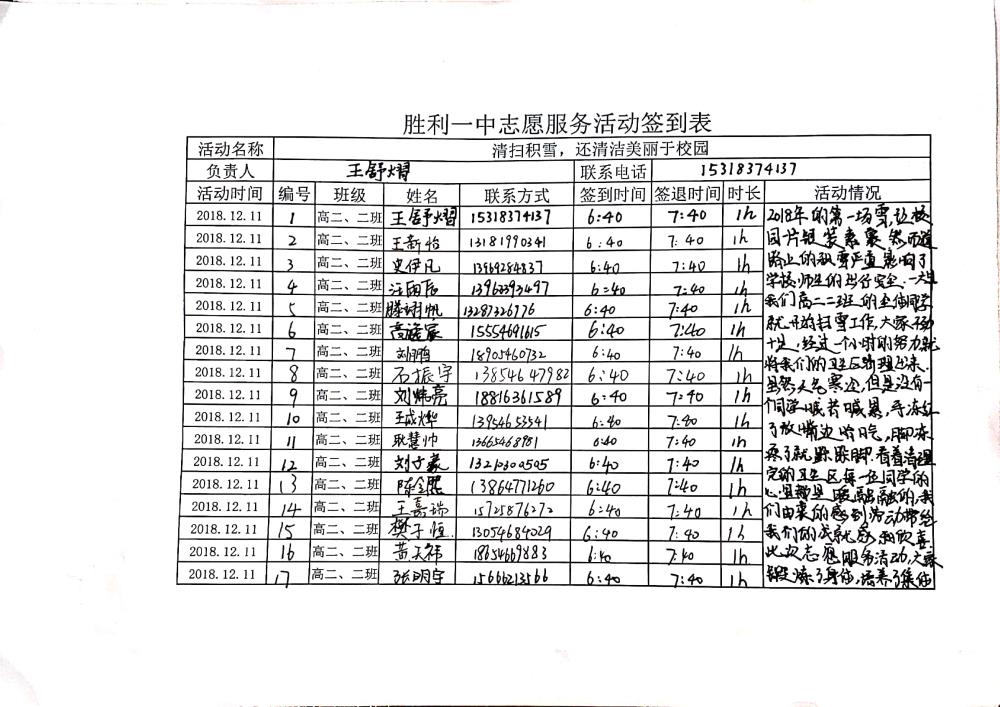 胜利一中志愿服务活动签到表
活动名称 清扫积雪，还清洁美丽于校园
负责人 王舒熠 联系电话 15318374137
活动时间 编号 班级 姓名 联系方式 签到时间 签退时间 时长 活动情况
2018.12.11 1 高二、二班 王舒熠 15318374137 6:40 7:40 1h
2018.12.11 2 高二、二班 王新怡 13181990341 6:40 7:40 1h
2018.12.11 3 高二、二班 史伊凡 13969284837 6:40 7:40 1h
2018.12.11 4 高二、二班 汪雨辰 13963393497 6:40 7:40 1h
2018.12.11 5 高二、二班 滕翊帆 13287326776 6:40 7:40 1h
2018.12.11 6 高二、二班 15554691615 6:40 7:40 1h
2018.12.11 7 高二、二班 刘鹏 18905460732 6:40 7:40 1h
2018.12.11 8 高二、二班 石振宇 13854647982 6:40 7:40 1h
2018.12.11 9 高二、二班 刘炜亮 18816361589 6:40 7:40 1h
2018.12.11 10 高二、二班 王成烨 13954653541 6:40 7:40 1h
2018.12.11 11 高二、二班 耿慧帅 13665468981 6:40 7:40 1h
2018.12.11 12 高二、二班 刘文豪 13210300505 6:40 7:40 1h
2018.12.11 13 高二、二班 陈金熙 13864771260 6:40 7:40 1h
2018.12.11 14 高二、二班 王嘉瑞 15725876272 6:40 7:40 1h
2018.12.11 15 高二、二班 樊子恒 13054684029 6:40 7:40 1h
2018.12.11 16 高二、二班 黄天祎 18654669883 6:40 7:40 1h
2018.12.11 17 高二、二班 张明宇 15666213566 6:40 7:40 1h
2018年的第一场雪，让校
园片银装素裹，然而道
路上的积雪严重影响了
学校师生的出行安全，一大早
我们高二二班的全体同学
就开始扫雪工作，大家干劲
十足，经过一个小时的努力就
将我们的卫生区清理出来。
虽然天气寒冷，但是没有一
个同学喊苦喊累，手冻红
了放嘴边哈口气，脚冻
疼了就跺跺脚，看着清理
完的卫生区每一位同学的
心里都是暖融融的，我
们由衷的感到活动带给
我们的成就感和欣喜
此次志愿服务活动，大家
锻炼了身体，培养了集体